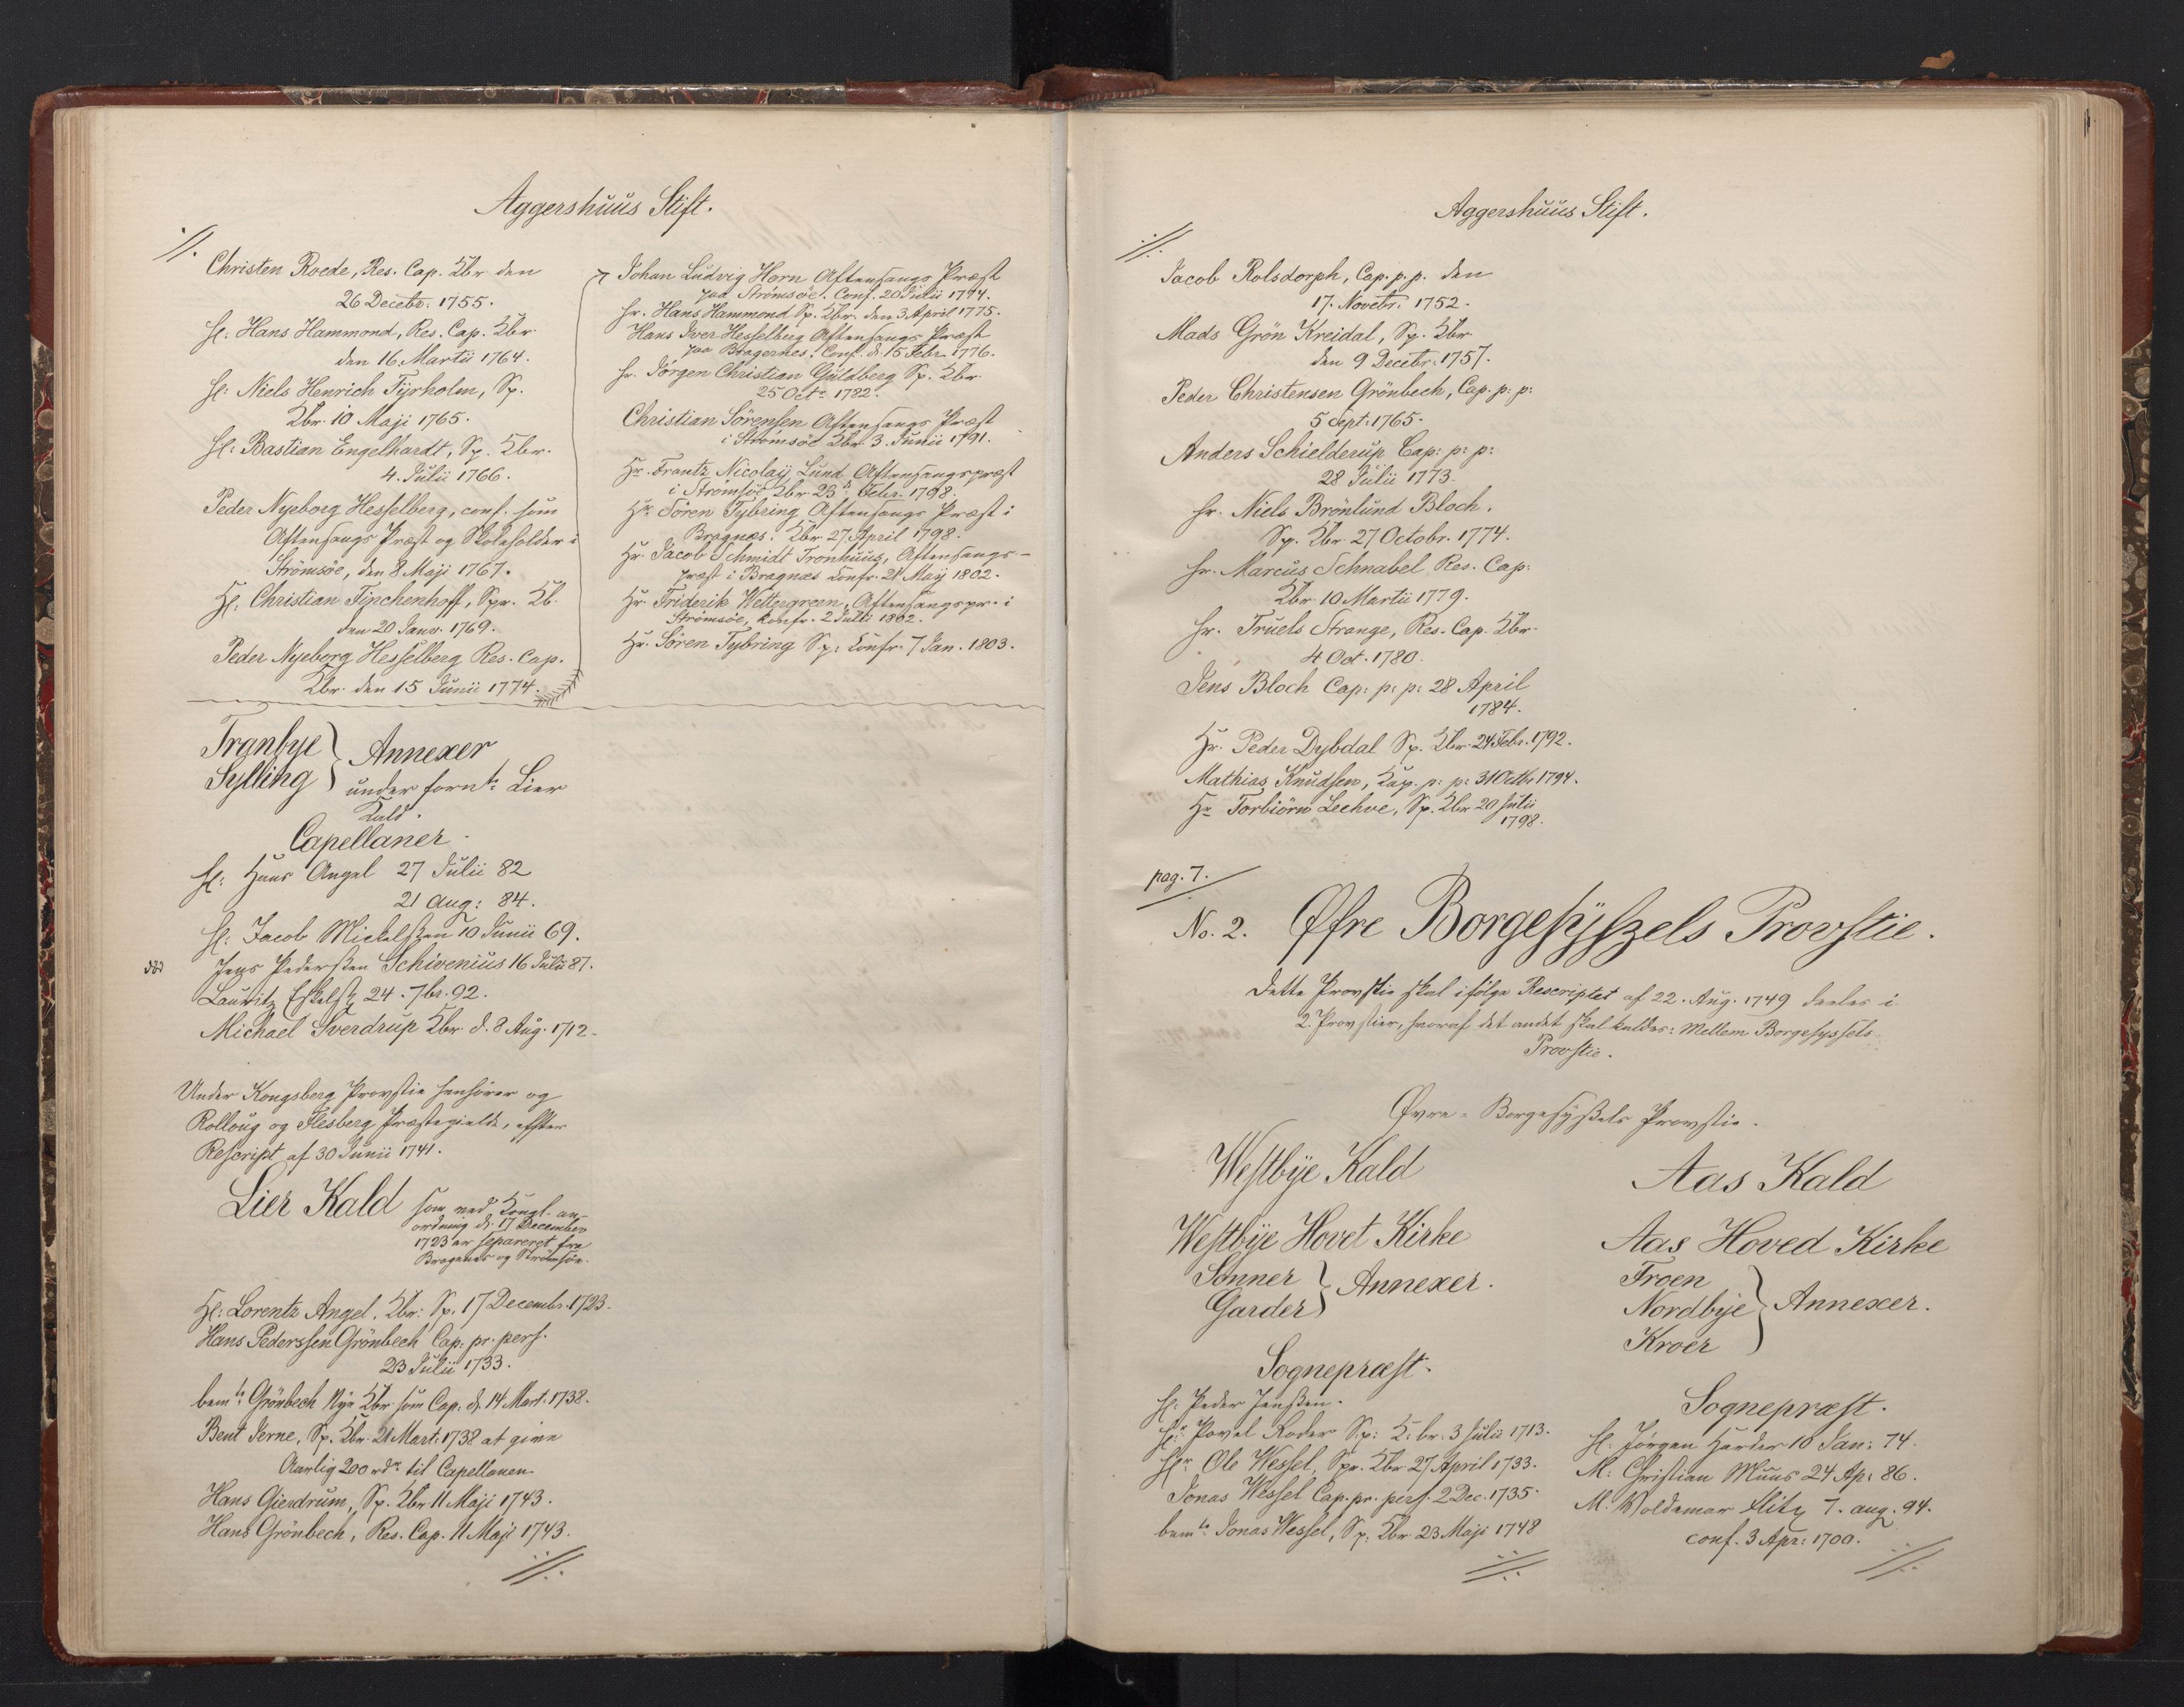 Aggershuus Stift.
//.
Christen Roede, Res. Cap. Kbr den
26 Decebr. 1755.
H: Hans Hammond, Res. Cap. Kbr.
den 16. Martii 1764.
H: Niels Henrich Tyrholm, Sp.
Kbr. 10 Maji 1765.
H: Bastian Engelhardt, Sp. Kbr.
4. Julii 1766.
Peder Nyeborg Hesselberg, conf. som
Aftensangs Præst og Skoleholder i
Strömsöe, den 8 Maji 1767.
H: Christian Finchenhoff, Spr. Kb.
den 20 Janr. 1769.
Peder Nyeborg Hesselberg Res. Cap.
Kbr. den 15 Junii 1774.
Johan Ludvig Horn Aftensangs Præst
paa Strömsöe. Conf. 20 Julii 1774.
Hr. Hans Hammond Sp. Kbr. den 3 April 1775.
Hans Iver Hesselberg Aftensangs Præst
paa Bragernes. Conf. d. 15 Febr. 1776.
Hr. Jörgen Christian Guldberg Sp. Kbr.
25 Octr. 1782.
Christian Sörensen Aftensangs Præst
i Strömsöe Kbr. 3. Junii 1791.
Hr. Frantz Nicolaij Lund Aftensangspræst
i Strömsöe Kbr. 23d Febr. 1798.
Hr. Sören Tybring Aftensangs Præst i
Bragnæs. Kbr 27 April 1798.
Hr. Jacob Schmidt Tronhuus, Aftensangs-
præst i Bragnæs Confr. 21 Maij 1802.
Hr. Friderik Wettergreen, Aftensangspr. i
Strömsöe, Konfr. 2 Julii 1802.
Hr. Sören Tybring Sp: Confr. 7 Jan. 1803.
Tranbye } Annexer
Sylling } under fornte Lier
Kald.
Capellaner.
H: Hans Angel 27 Julii 82
21 Aug: 84.
H: Jacob Mickelssen 10 Junii 69.
Jens Pederssen Schivenius 16 Julii 87.
Lauritz Eskels: 24. 7br. 92.
Michael Sverdrup Kbr d. 8 Aug. 1712.
Under Kongsberg Provstie henhörer og
Rolloug og Flesberg Præstegield, efter
Rescript af 30 Junii 1741.
Lier Kald som med Kongl. an-
ordning d. 17 December
1723 er separeret fra
Bragenes og Strömsöe.
H: Lorentz Angel. Kbr: Sp. 17 Decembr. 1723.
Hans Pederssen Grönbech Cap. pr. pers.
23 Julii 1733.
bemte Grönbech Nye Kbr som Cap. d. 14 Mart. 1738.
Bent Jerne, Sp. Kbr. 21 Mart: 1738 at give
Aarlig 200 rdr til Capellanen.
Hans Gierdrum, Sp. Kbr. 11 Maji 1743.
Hans Grönbech, Res. Cap. 11 Maji 1743.
//.
Aggershuus Stift.
//.
Jacob Rolsdorph, Cap. p. p. den
17. Novebr. 1752.
Mads Grön Kreidal, Sp. Kbr.
den 9 Decebr. 1757.
Peder Christensen Grönbech, Cap. p. p:
5 Sept: 1765.
Anders Schielderup Cap: p: p:
28 Julii 1773.
Hr. Niels Brönlund Bloch.
Sp. Kbr. 27 Octobr. 1774.
Hr. Marcus Schnabel Res. Cap:
Kbr. 10 Martii 1779.
Hr. Truels Strange, Res. Cap. Kbr.
4 Oct. 1780.
Jens Bloch Cap: p: p: 28 April
1784.
Hr. Peder Dybdal Sp. Kbr. 24 Febr. 1792.
Mathias Knudsen, Kap. p: p: 31 Octbr 1794.
Hr Torbiörn Leehve, Sp. Kbr 20 Julii
1798.
pag. 7.
No. 2. Øfre Borgesyszels Provstie.
Dette Provstie skal ifölge Rescriptet af 22. Aug. 1749 deeles i
2. Provstier, hvoraf det andet skal kaldes: Mellem Borgesyssels
Provstie.
Øvre-Borgesyssels Provstie.
Westbye Kald
Westbye Hovet Kirke
Sonner } Annexer.
Garder
Sognepræst.
H: Peder Jenssen.
H: Povel Roder Sp: K: br: 3 Julii 1713.
Hr Ole Wessel, Spr. Kbr 27 April 1733.
Jonas Wessel Cap. pr. pers. 2 Dec. 1735.
bemte Jonas Wessel, Sp. Kbr 23 Maji 1748
//.
Aas Kald
Aas Hoved Kirke
Froen
Nordbye } Annexer.
Kroer
Sognepræst.
H: Jörgen Harder 10 Jan: 74.
M: Christian Muus 24 Ap: 86.
M: Woldemar 7. aug. 94.
conf. 3 Apr: 1700.
//.